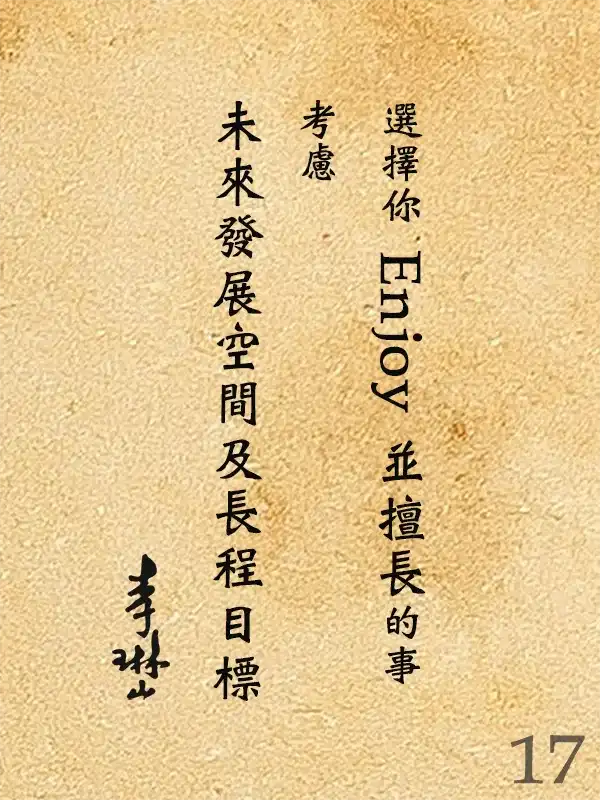 選擇你 Enjoy 並擅長的事
考慮
未來發展空間及長程目標
李琳山
17